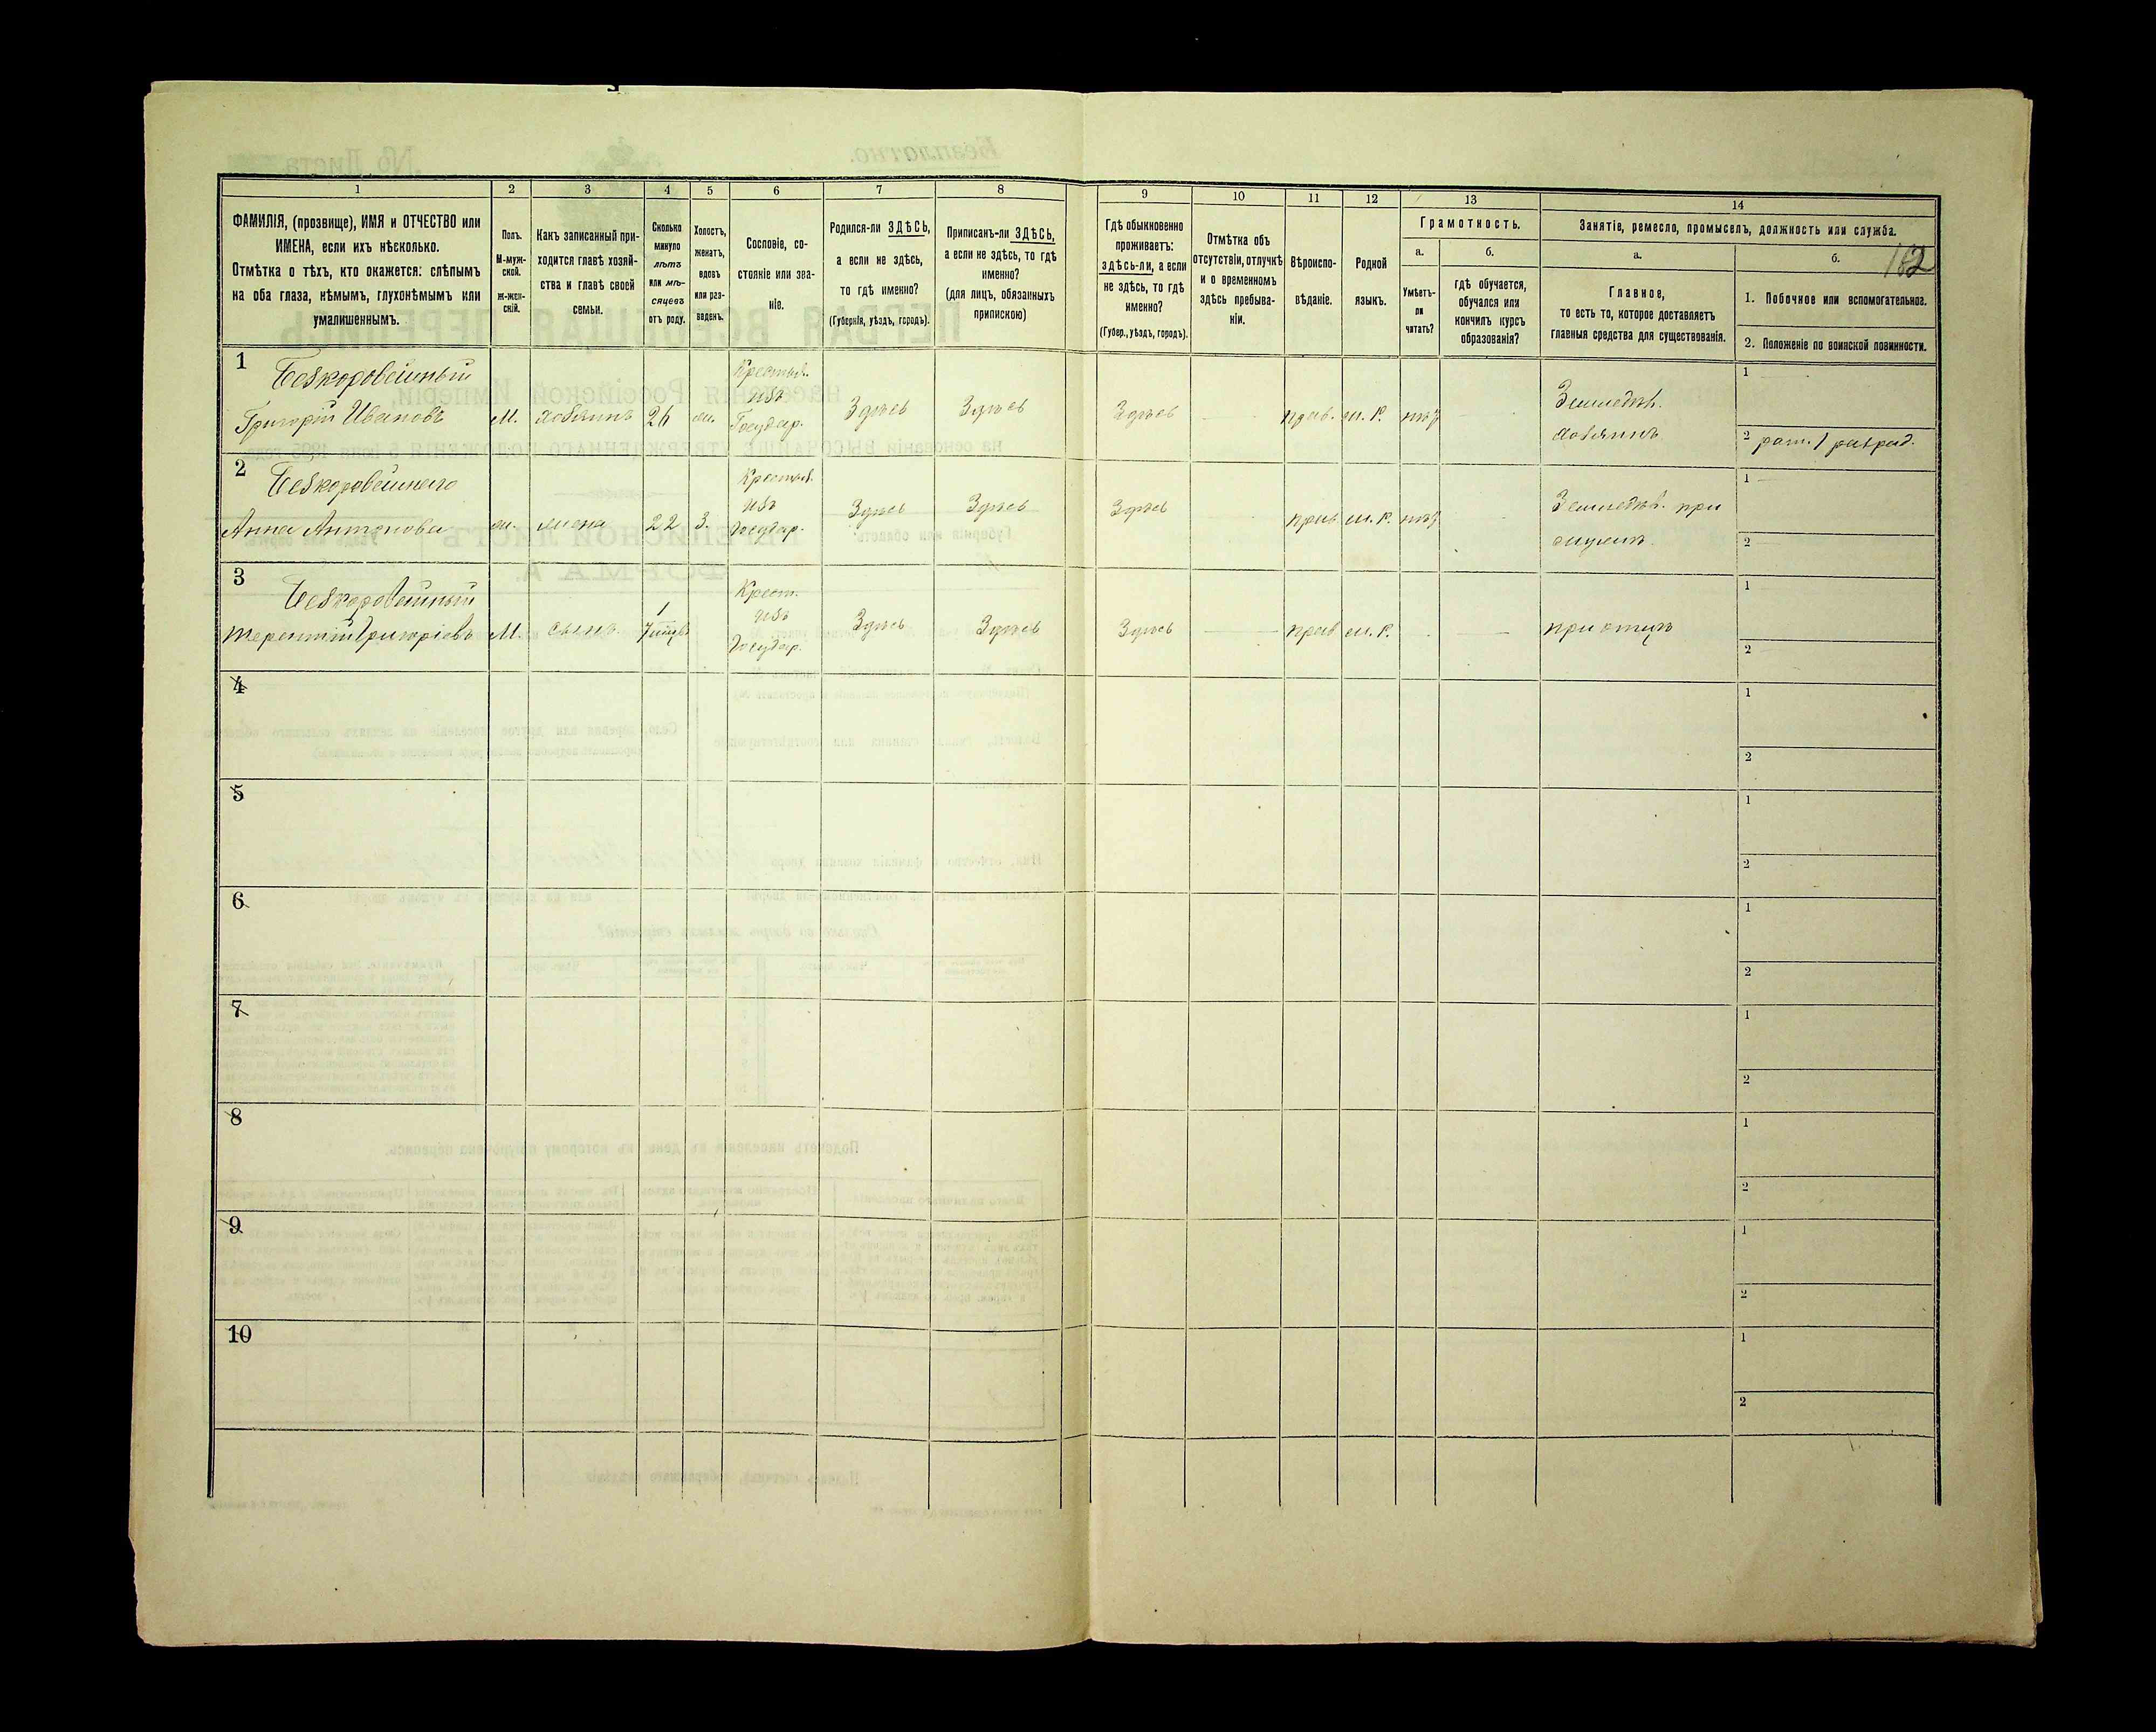 1 2 3 4 5 6 7 8 9 10 11 12 13 14
ФАМИЛІЯ, (прозвище), ИМЯ и ОТЧЕСТВО или
ИМЕНА, если ихъ нѣсколько.
Отмѣтка о тѣхъ, кто окажется: слѣпымъ
на оба глаза, нѣмымъ, глухонѣмымъ или
умалишеннымъ.
Полъ.
М-муж-
ской.
Ж-жен-
скій.
Какъ записанный при-
ходится главѣ хозяй-
ства и главѣ своей
семьи.
Сколько
минуло
лѣтъ
или мѣ-
сяцевъ
отъ роду.
Холостъ,
женатъ,
вдовъ
или раз-
веденъ.
Сословіе, со-
стояніе или зва-
ніе.
Родился-ли ЗДѢСЬ,
а если не здѣсь,
то гдѣ именно?
(Губернія, уѣздъ, городъ).
Приписанъ-ли ЗДѢСЬ,
а если не здѣсь, то гдѣ
именно?
(для лицъ, обязанныхъ
припискою)
Гдѣ обыкновенно
проживаетъ:
здѣсь-ли, а если
не здѣсь, то гдѣ
именно?
(Губер., уѣздъ, городъ).
Отмѣтка объ
отсутствіи, отлучкѣ
и о временномъ
здѣсь пребыва-
ніи.
Вѣроиспо-
вѣданіе.
Родной
языкъ.
Грамотность.
а.
Умѣетъ-
ли
читать?
б.
гдѣ обучается,
обучался или
кончилъ курсъ
образованія?
Занятіе, ремесло, промыселъ, должность или служба.
а.
Главное,
то есть то, которое доставляетъ
главныя средства для существованія.
б.
162
1. Побочное или вспомогательное.
2. Положеніе по воинской повинности.
1
Безкоровайный
Григорій Ивановъ
М.
хозяинъ
26
ж.
Крестья.
изъ
Государ.
Здѣсь
Здѣсь
Здѣсь
прав.
м. р.
нѣт
Земледѣл.
хозяинъ
1
2 рат. 1 разряд.
2
Безкоровайнаго
Анна Антонова
ж.
жена
22
З.
Крестья.
изъ
Государ.
Здѣсь
Здѣсь
Здѣсь
прав
м. р.
нѣт
Земледѣл. при
мужѣ
1
2
3
Безкоровайный
Терентій Григоріевъ
М.
сынъ
7 мѣц
Крест.
изъ
Государ.
Здѣсь
Здѣсь
Здѣсь
прав
м. р.
при отцѣ
1
2
4
1
2
5
1
2
6
1
2
7
1
2
8
1
2
9
1
2
10
1
2